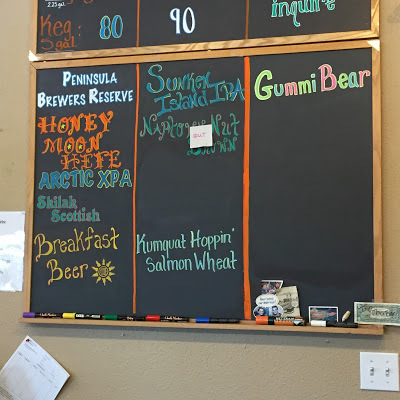 2.25 gal
Keg
5gal.
80
90
inquire
PENINSULA
BREWERS RESERVE
HONEY
MOON
HEFE
ARCTIC XPA
Skilak
Scottish
Breakfast
Beer
Sunken
Island IPA
Naptown Nut
Brown
OUT
Kumquat Hoppin'
Salmon Wheat
Gummi Bear